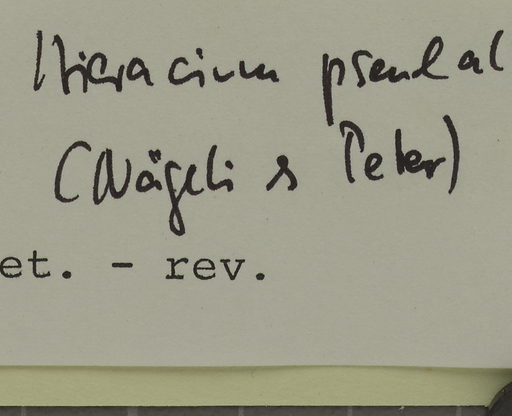 Hieracium pseudal
(Nägeli & Peter)
et. - rev.